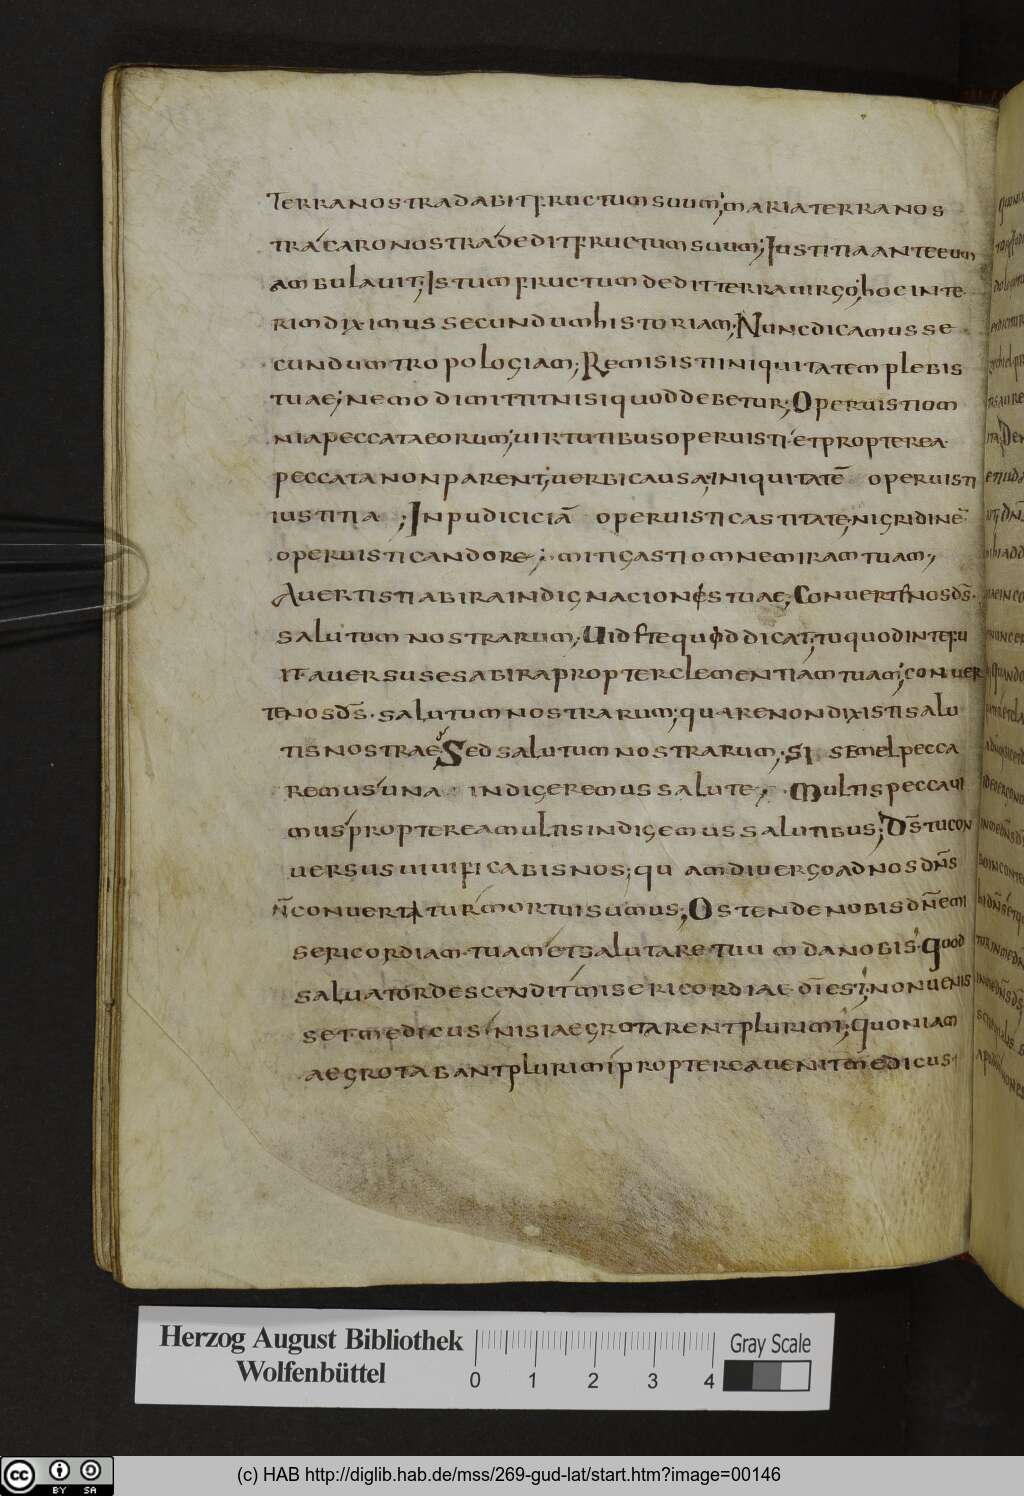 terra nostra dabit fructum suum; maria terra nos
tra; caro nostra dedit fructum suum; Iustitia ante eum
ambulavit; Istum fructum dedit terra virgo; hoc inte
rim diximus secundum historiam; Nunc dicamus se
cundum tropologiam; Remisisti iniquitatem plebis
tuae; nemo dimittit nisi quod debetur; Operuisti om
nia peccata eorum; uirtutibus operuisti et propterea
peccata non parent; uerbi causa; iniquitatē operuisti
iustitia ; In pudiciciā operuisti castitate; nigridinē
operuisti candore; mitigasti omnem iram tuam,
Auertisti ab ira indignacionis tuae; Conuerte nos d̄s
salutum nostrarum; Uidete quod dicat; tu quod inte fu
it auersus es ab ira propter clementiam tuam; conuer
te nos d̄s. salutum nostrarum; quare non dixisti salu
tis nostrae; Sed salutum nostrarum; si semel pecca
remus una indigeremus salute, Multis peccaui
mus propterea multis indigemus salutibus; D̄s tu con
uersus uiuificabis nos; qu am diu ergo ad nos dn̄s
n̄ conuertitur mortui sumus; Ostende nobis dn̄e mi
sericordiam tuam et salutare tuu m da nobis. Quod
saluator descendit misericordiae dī est; non uenis
set medicus nisi aegrotarent plurimi; quoniam
aegrotabant plurimi propterea uenit medicus
Herzog August Bibliothek
Wolfenbüttel
0 1 2 3 4
Gray Scale
cc BY SA
(c) HAB http://diglib.hab.de/mss/269-gud-lat/start.htm?image=00146